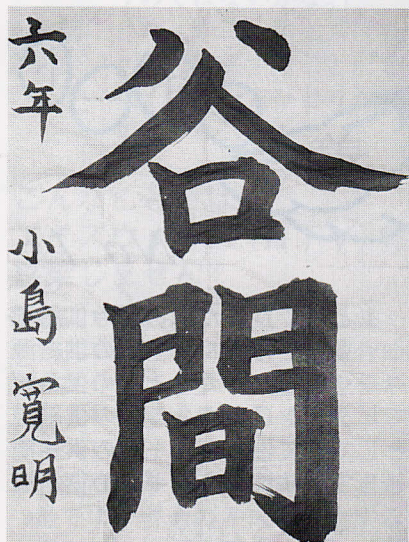 谷間
六年 小島 寛明